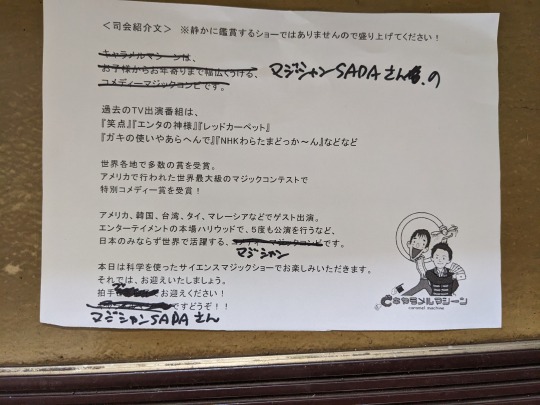 ＜司会紹介文＞ ※静かに鑑賞するショーではありませんので盛り上げてください！
キャラメルマシーンは、
お子様からお年寄りまで幅広くうける、マジシャンSADAさん の
コメディーマジックコンビです。
過去のTV出演番組は、
『笑点』『エンタの神様』『レッドカーペット』
『ガキの使いやあらへんで』『NHKわらたまどっか～ん』などなど
世界各地で多数の賞を受賞。
アメリカで行われた世界最大級のマジックコンテストで
特別コメディー賞を受賞！
アメリカ、韓国、台湾、タイ、マレーシアなどでゲスト出演。
エンターテイメントの本場ハリウッドで、5度も公演を行うなど、
日本のみならず世界で活躍する、コメディーマジックコンビです。
マジシャン
本日は科学を使ったサイエンスマジックショーでお楽しみいただきます。
それでは、お迎えいたしましょう。
拍手で お迎えください！
ですどうぞ！！
マジシャンSADAさん
キャラメルマシーン
caramel machine